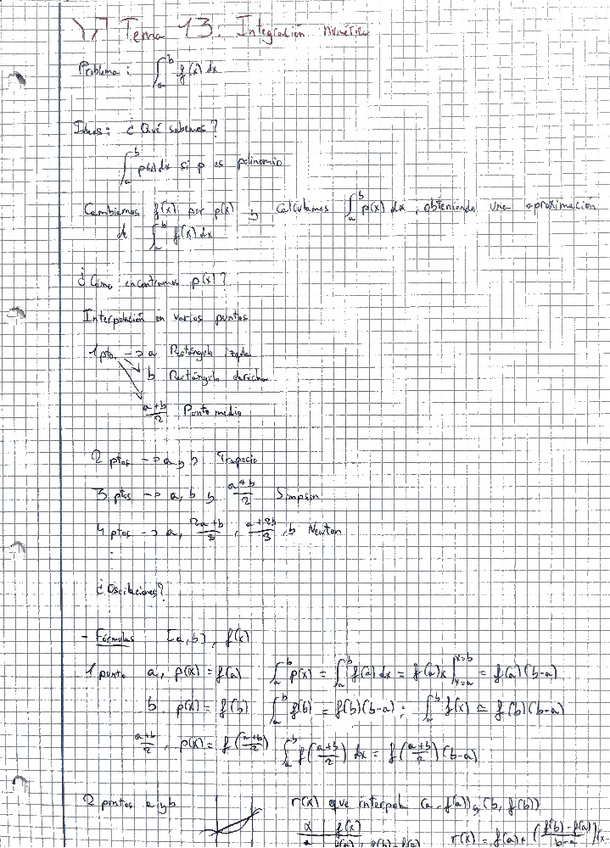 Tema 13: Integración numérica
Problema: ∫_a^b f(x) dx
Ideas: ¿Qué sabemos?
∫_a^b p(x) dx si p es polinomio
Cambiamos f(x) por p(x) y calculamos ∫_a^b p(x) dx, obteniendo una aproximación
de ∫_a^b f(x) dx
¿Cómo encontramos p(x)?
Interpolación en varios puntos
1 pto. → a Rectángulo izqda
b Rectángulo derecha
(a+b)/2 Punto medio
2 ptos → a y b Trapecio
3 ptos → a, b y (a+b)/2 Simpson
4 ptos → a, (2a+b)/3, (a+2b)/3, b Newton
¿Oscilaciones?
- Fórmulas [a,b], f(x)
1 punto a, p(x) = f(a) ∫_a^b p(x) = ∫_a^b f(a) dx = f(a)x |_{x=a}^{x=b} = f(a)(b-a)
b p(x) = f(b) ∫_a^b f(b) = f(b)(b-a); ∫_a^b f(x) ≃ f(b)(b-a)
(a+b)/2, p(x) = f((a+b)/2) ∫_a^b f((a+b)/2) dx = f((a+b)/2)(b-a)
2 puntos a y b r(x) que interpola (a, f(a)) y (b, f(b))
x f(x)
r(x) = f(a) + (f(b)-f(a))/(b-a) (x-